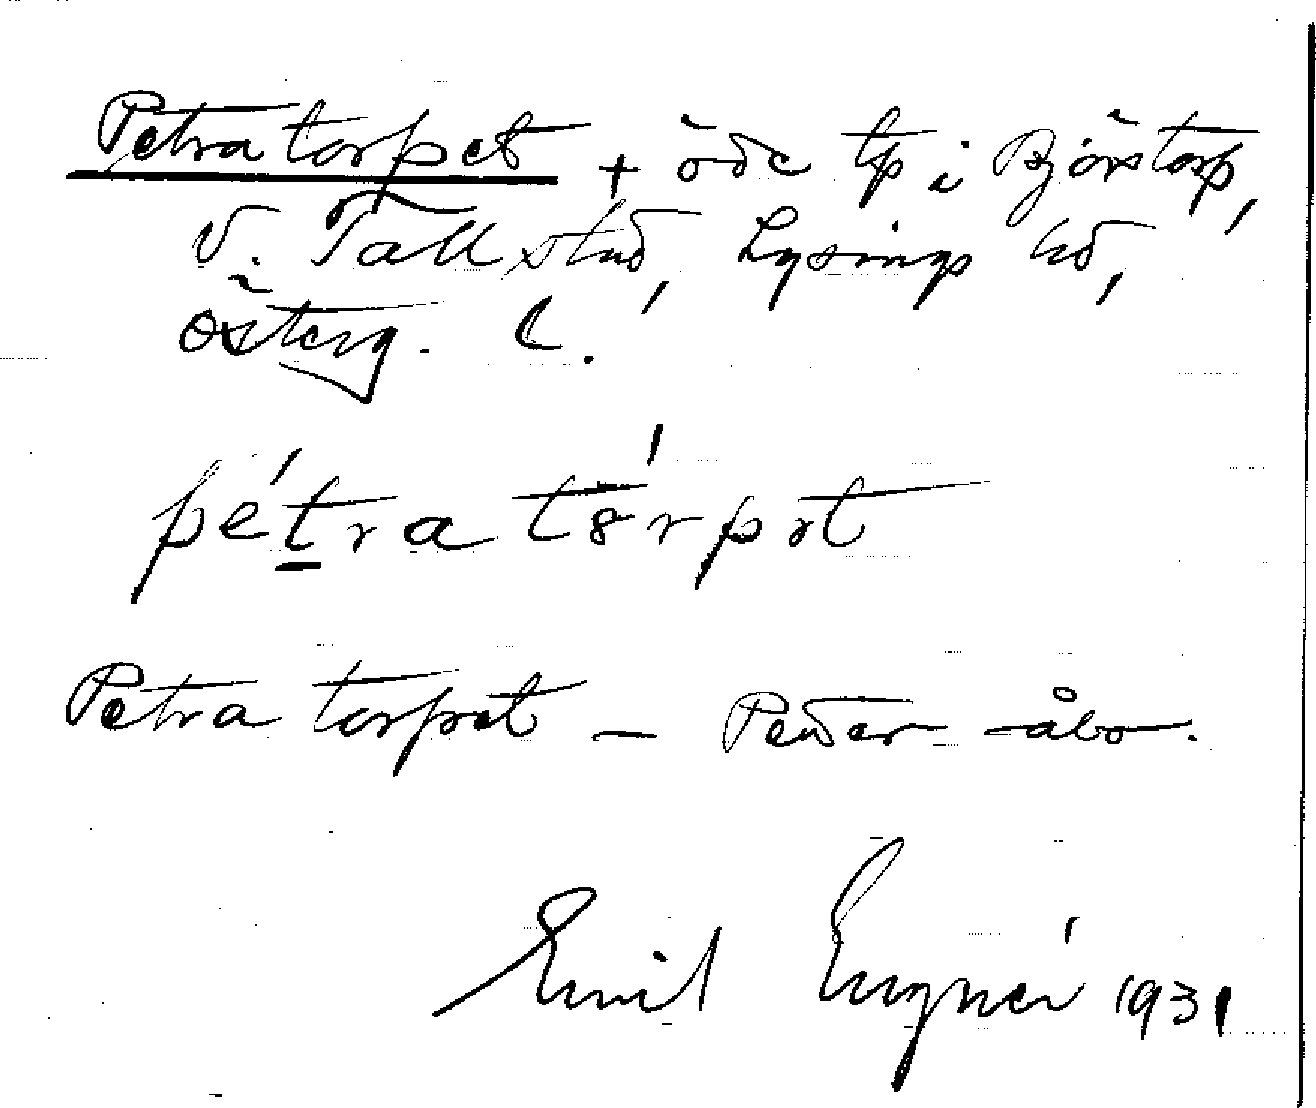 Petratorpet + öde tp i Björstorp,
V. Tollstad, Lysings hd,
Österg. L.
pétra tórpət
Petra torpet – Peder –åbo–.
Emil Lugnér 1931